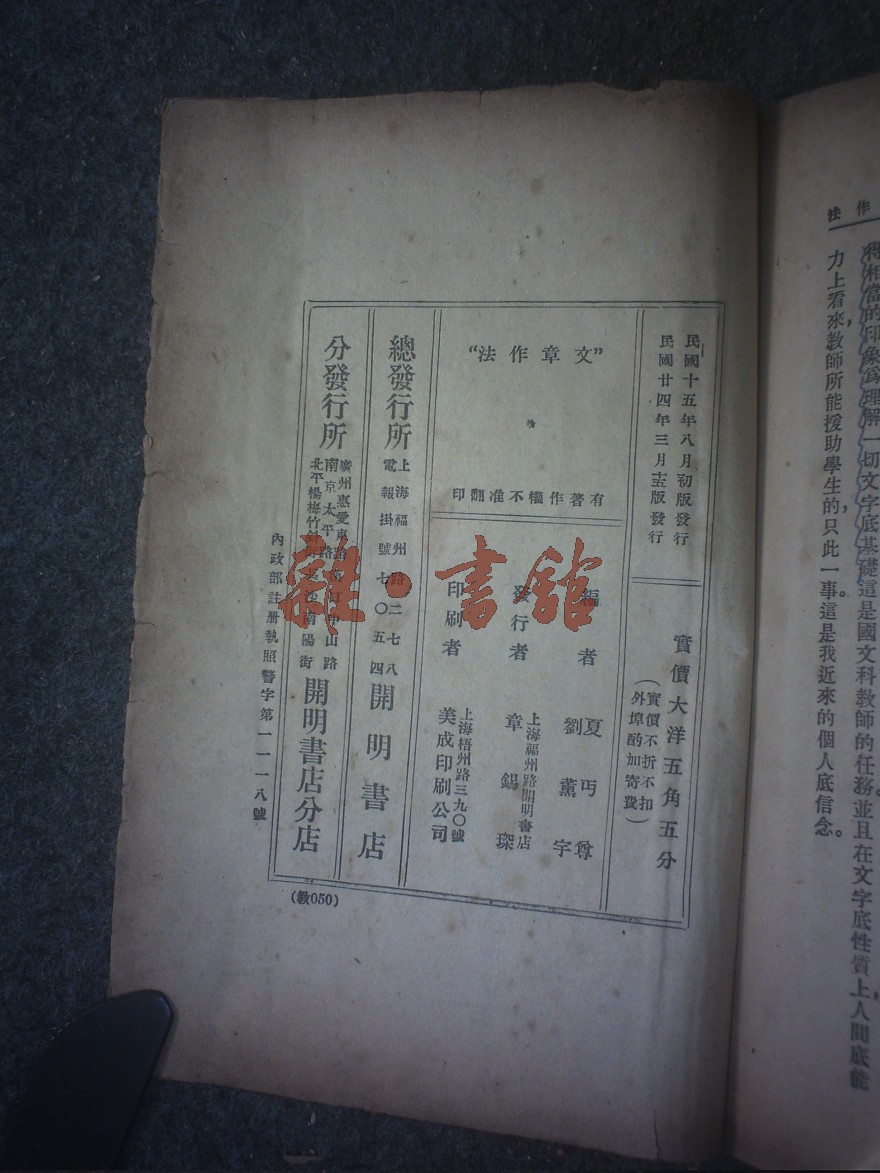 作
法
得相當的印象爲理解一切文字底基礎這是國文科教師的任務。並且在文字底性質上，人間底能
力上看來，教師所能援助學生的，只此一事。這是我近來的個人底信念。
民國十五年八月初版發行
民國廿四年三月 版發行
實價大洋五角五分
（實價不折不扣
外埠酌加寄費）
“文章作法”
有著作權不准翻印
編者
夏丏尊
劉薰宇
發行者
上海福州路開明書店
章錫琛
印刷者
上海梧州路三九〇號
美成印刷公司
總發行所
上海福州路二七八
電報掛號七〇五四
開明書店
分發行所
廣州惠愛東路 中山路
南京太平路 南陽街
北平楊梅竹斜街
開明書店分店
內政部註册執照警字第一一一八號
（敎050）
雜·書館